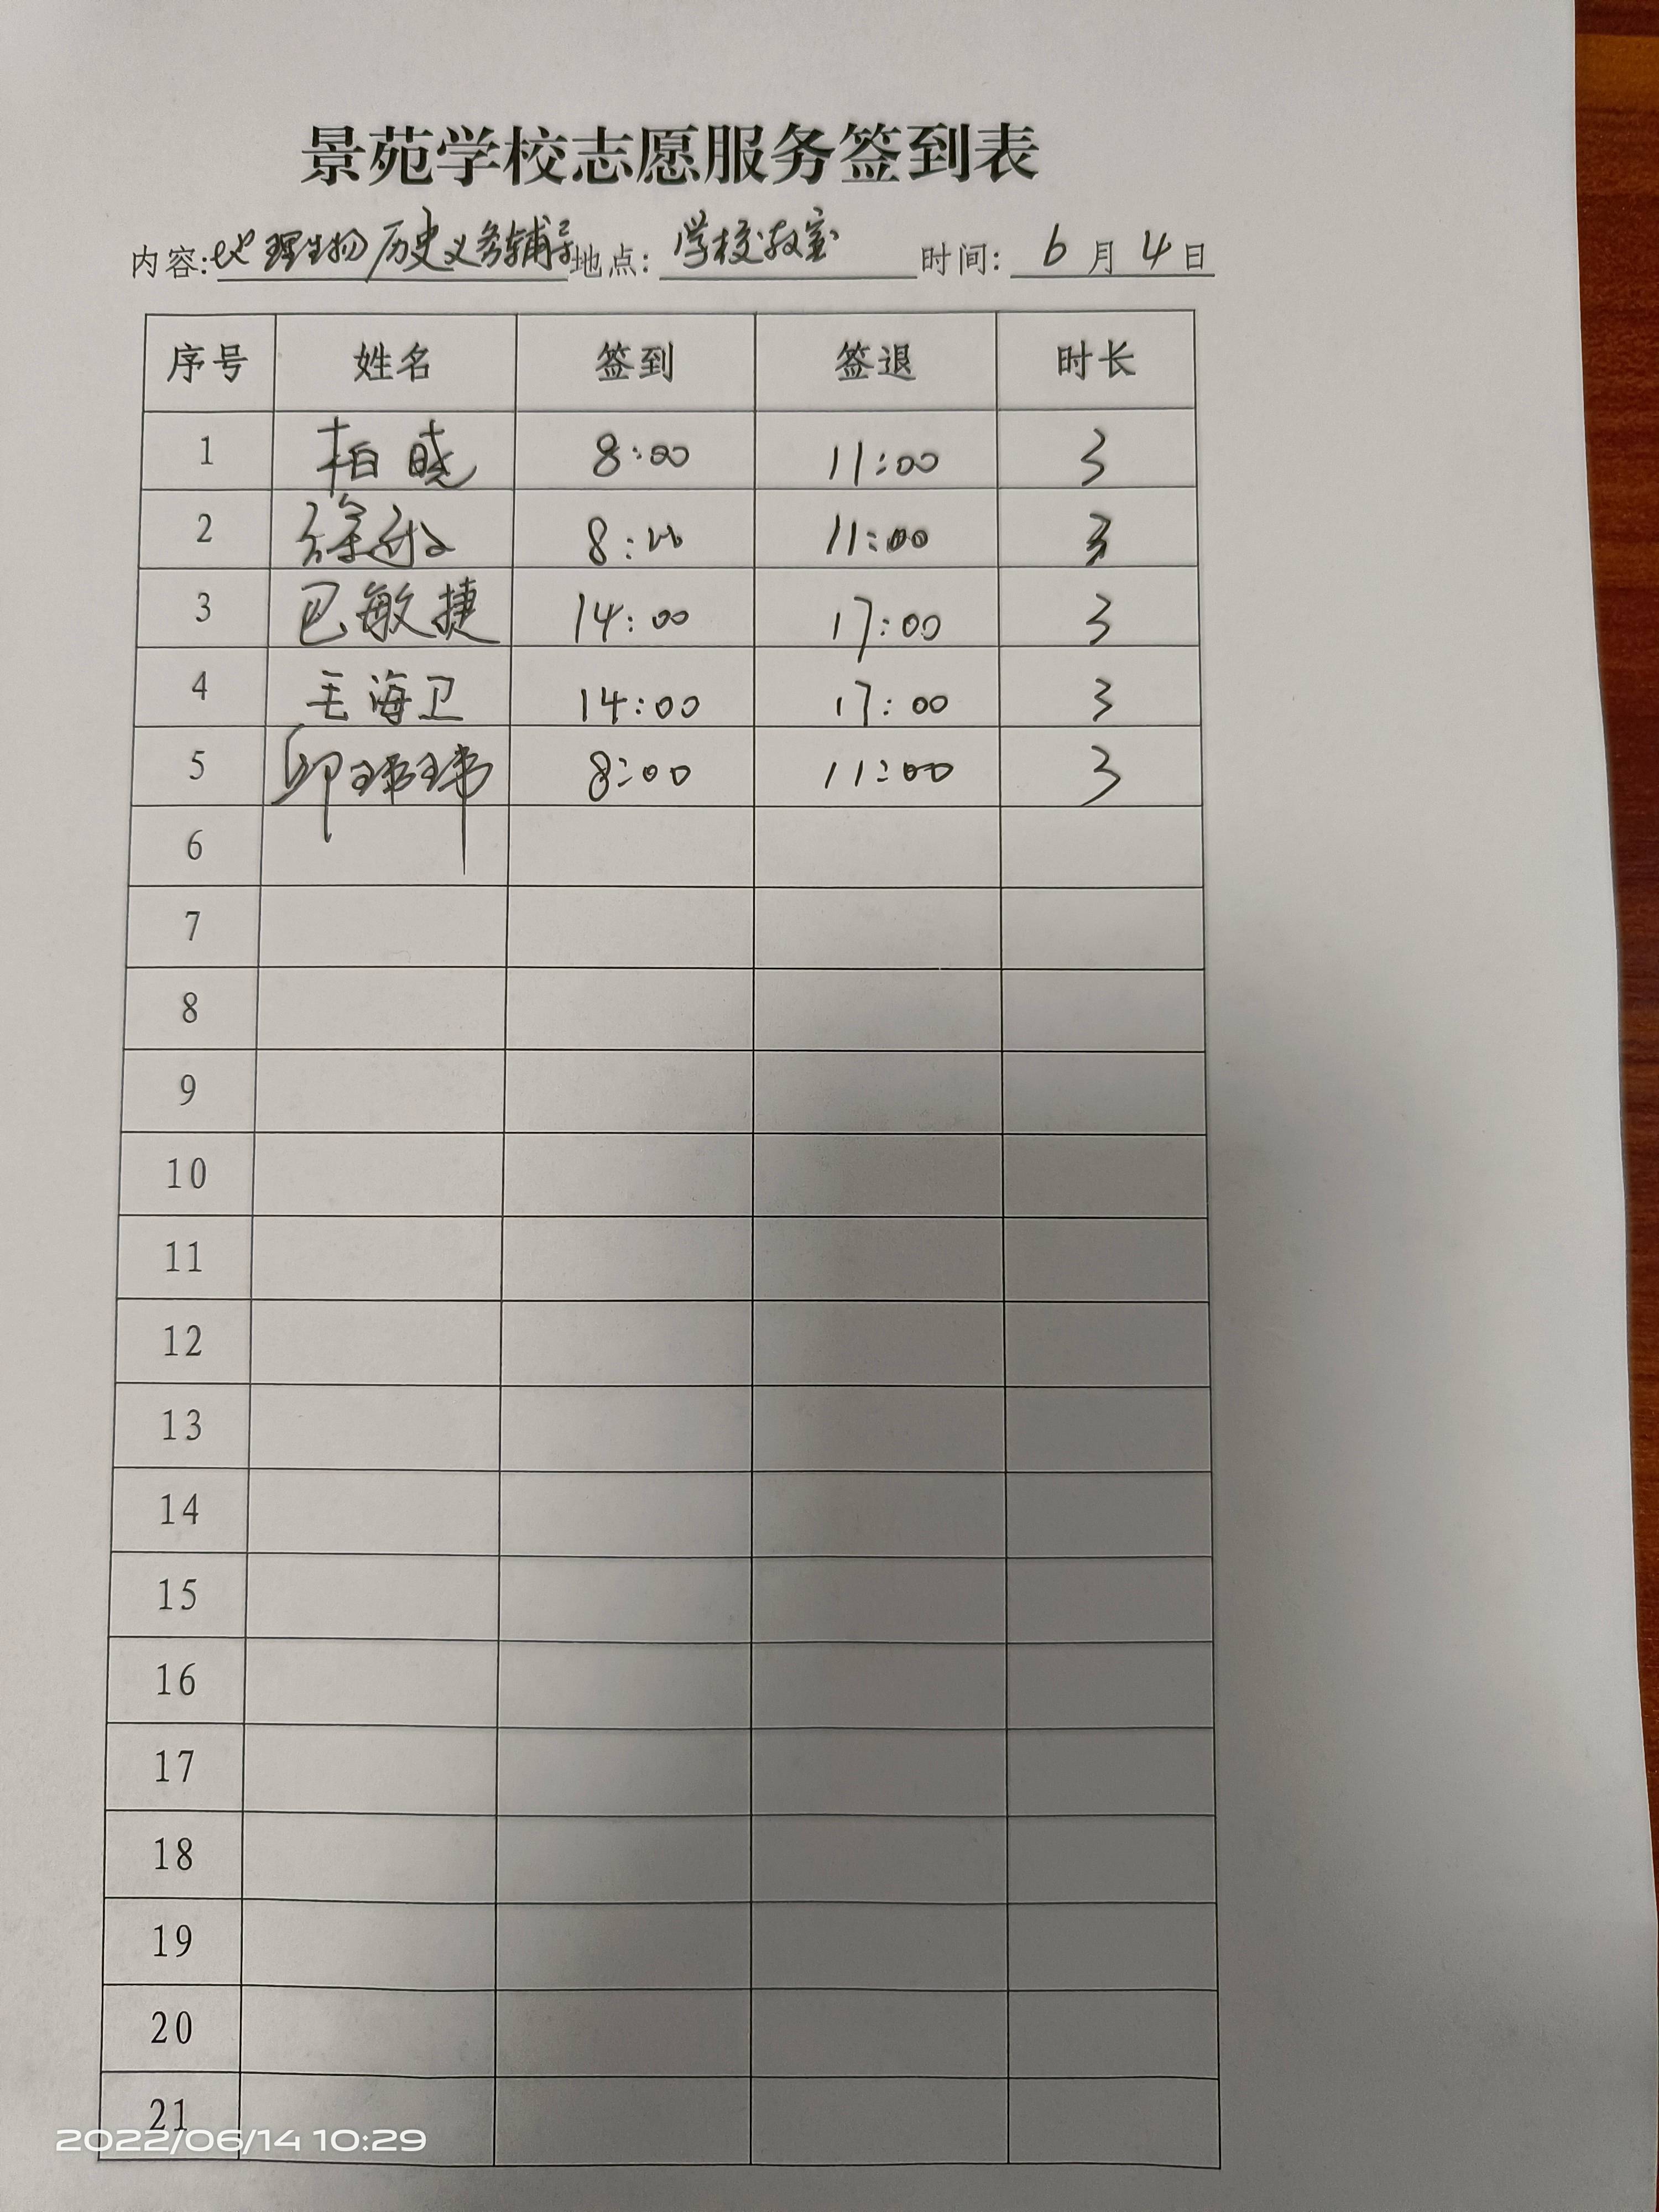 景苑学校志愿服务签到表
内容:地理生物历史义务辅导 地点: 学校教室 时间: 6月4日
序号 姓名 签到 签退 时长
1 柏晓 8:00 11:00 3
2 徐 8:00 11:00 3
3 巴敏捷 14:00 17:00 3
4 毛海卫 14:00 17:00 3
5 邱玮玮 8:00 11:00 3
6
7
8
9
10
11
12
13
14
15
16
17
18
19
20
21
2022/06/14 10:29